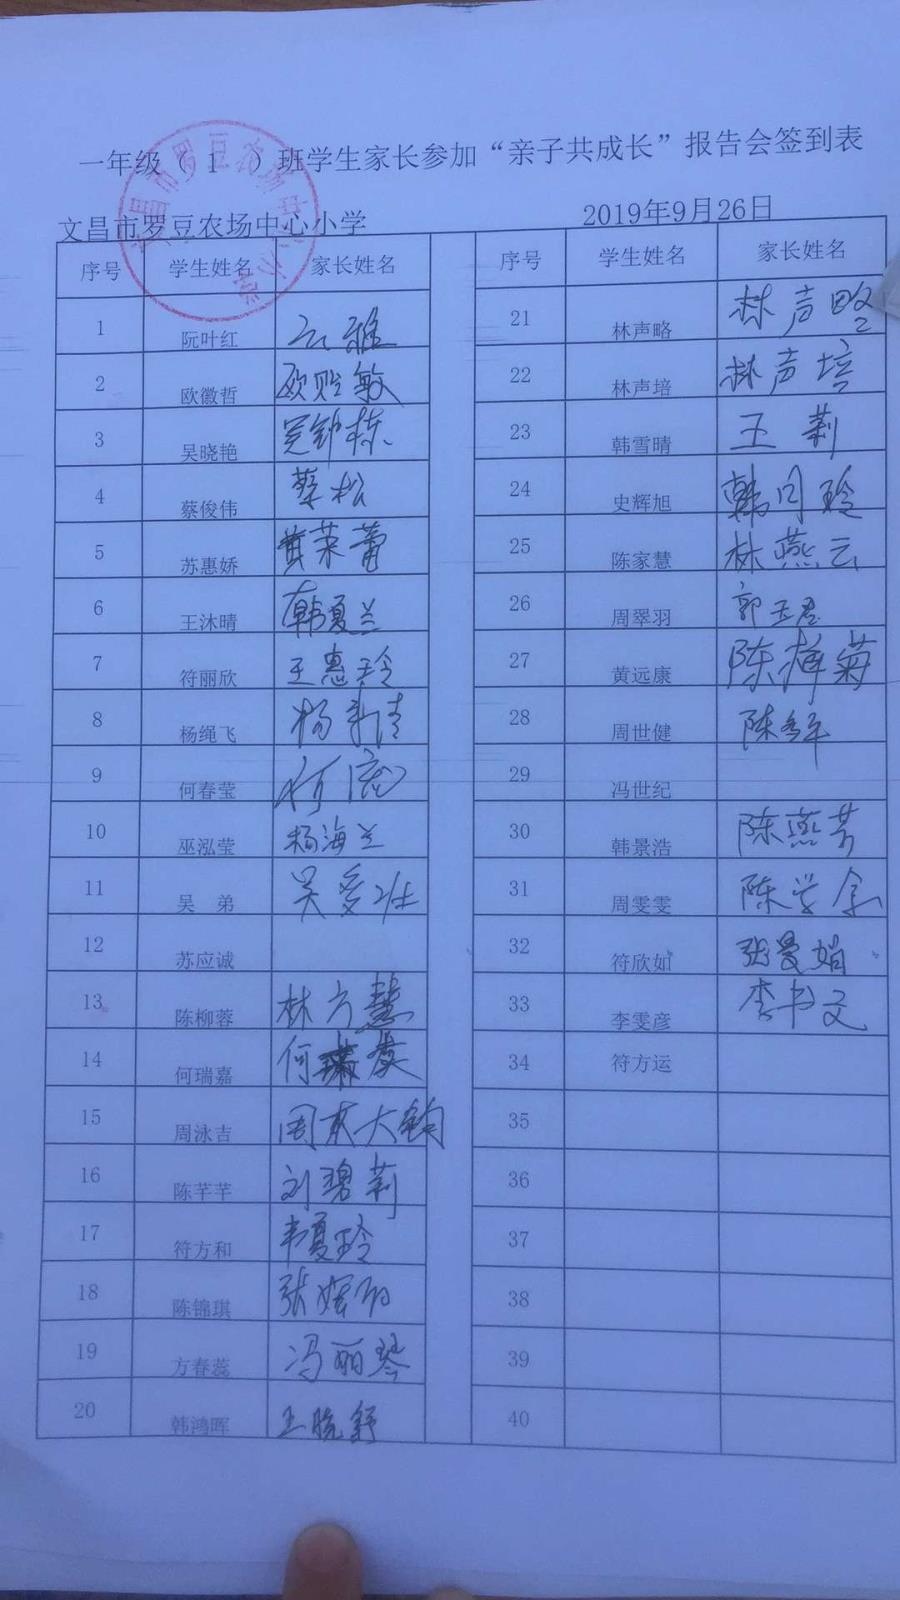 一年级（ 1 ）班学生家长参加“亲子共成长”报告会签到表
文昌市罗豆农场中心小学 2019年9月26日
序号 学生姓名 家长姓名 序号 学生姓名 家长姓名
1 阮叶红 21 林声略 林声略
2 欧徽哲 欧贻敏 22 林声培 林声培
3 吴晓艳 吴钟栋 23 韩雪晴 王莉
4 蔡俊伟 蔡松 24 史辉旭 韩月玲
5 苏惠娇 黄荣蕾 25 陈家慧 林燕云
6 王沐晴 韩夏兰 26 周翠羽 郭玉君
7 符丽欣 王惠玲 27 黄远康 陈择菊
8 杨绳飞 杨新清 28 周世健
9 何春莹 29 冯世纪
10 巫泓莹 杨海兰 30 韩景浩 陈燕芳
11 吴 弟 吴多壮 31 周雯雯 陈学余
12 苏应诚 32 符欣如 张曼娟
13 陈柳蓉 林方慧 33 李雯彦 李书文
14 何瑞嘉 34 符方运
15 周泳吉 35
16 陈芊芊 刘碧莉 36
17 符方和 韦夏玲 37
18 陈锦琪 38
19 方春蕊 冯丽琴 39
20 韩鸿晖 王晓舒 40